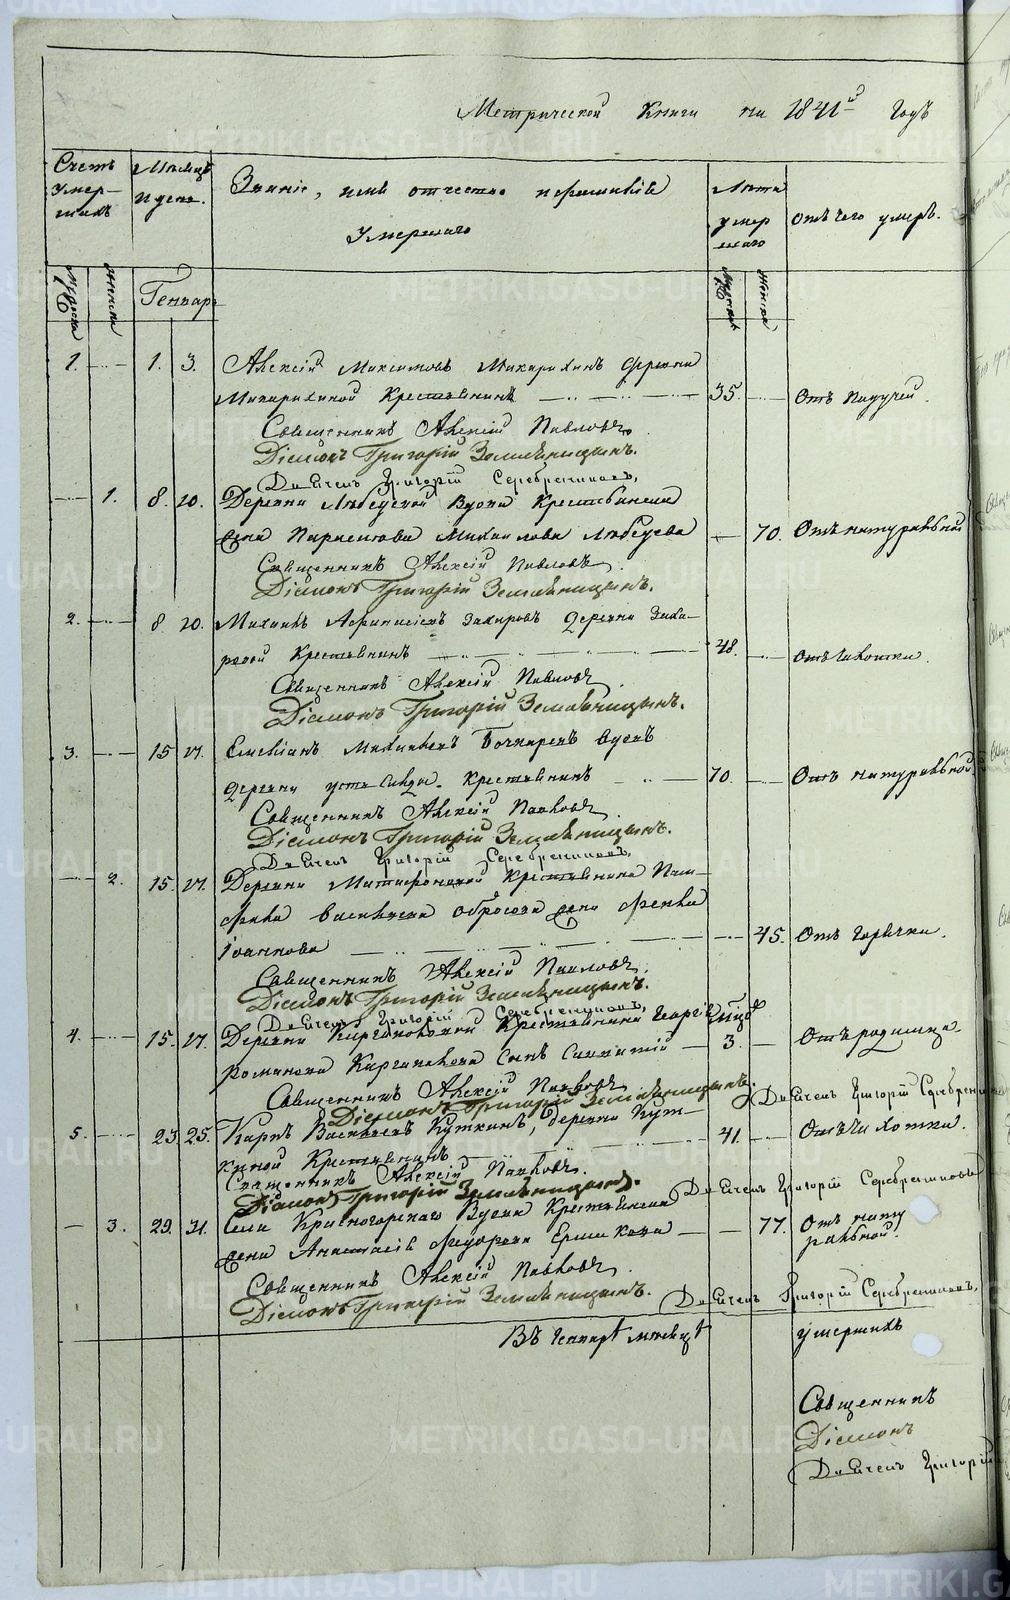 Метрической Книги на 1841й Годъ
Счетъ умершихъ
Мѣсяцъ и день.
Званіе, имя отчество и фамилія умершаго
Лѣта умершаго
Отъ чего умеръ.
мужеска
женска
Генварь
мужска
женска
1. 1. 3. Алексій Максимовъ Макарихинъ деревни
Макарихиной Крестьянинъ 35. Отъ падучей.
Священникъ Алексій Павловъ.
Діаконъ Григорій Земляницынъ.
Дьячекъ Григорій Серебренниковъ,
1. 8. 10. Деревни Лебедской Вдова Крестьянская
жена Параскова Михаилова Лебедева 70. Отъ натуральной
Священникъ Алексій Павловъ.
Діаконъ Григорій Земляницынъ.
2. 8 10. Михаилъ Афанасіевъ Захаровъ деревни Заха-
ровой Крестьянинъ 48. отъ чахотки.
Священникъ Алексій Павловъ
Діаконъ Григорій Земляницынъ.
3. 15 17. Емельянъ Михайловъ Бочкаревъ вдовъ
деревни усть Крестьянинъ 70. Отъ натуральной.
Священникъ Алексій Павловъ
Діаконъ Григорій Земляницынъ.
Дьячекъ Григорій Серебренниковъ,
2. 15. 17. Деревни Митрофановой Крестьянина
Васильева жена Фекла
Іоаннова 45. Отъ горячки.
Священникъ Алексій Павловъ.
Діаконъ Григорій Земляницынъ.
Дьячекъ Григорій Серебренниковъ,
4. 15. 17. Деревни Киргинцовой Крестьянина Георгія
Романова сынъ 3. Отъ родимца.
Священникъ Алексій Павловъ
Діаконъ Григорій Земляницынъ.
Дьячекъ Григорій Серебренниковъ
5. 23. 25. Карпъ Васильевъ Куткинъ, деревни Кут-
киной Крестьянинъ 41. Отъ чахотки.
Священникъ Алексій Павловъ.
Діаконъ Григорій Земляницынъ.
Дьячекъ Григорій Серебренниковъ
3. 29. 31. Села Красногорскаго Вдова Крестьянская
жена Анастасія Федорова Ершикова 77. Отъ натуральной.
Священникъ Алексій Павловъ.
Діаконъ Григорій Земляницынъ.
Дьячекъ Григорій Серебренниковъ,
Въ Генварѣ мѣсяцѣ умершихъ
Священникъ
Діаконъ
Дьячекъ Григорій
METRIKI.GASO-URAL.RU